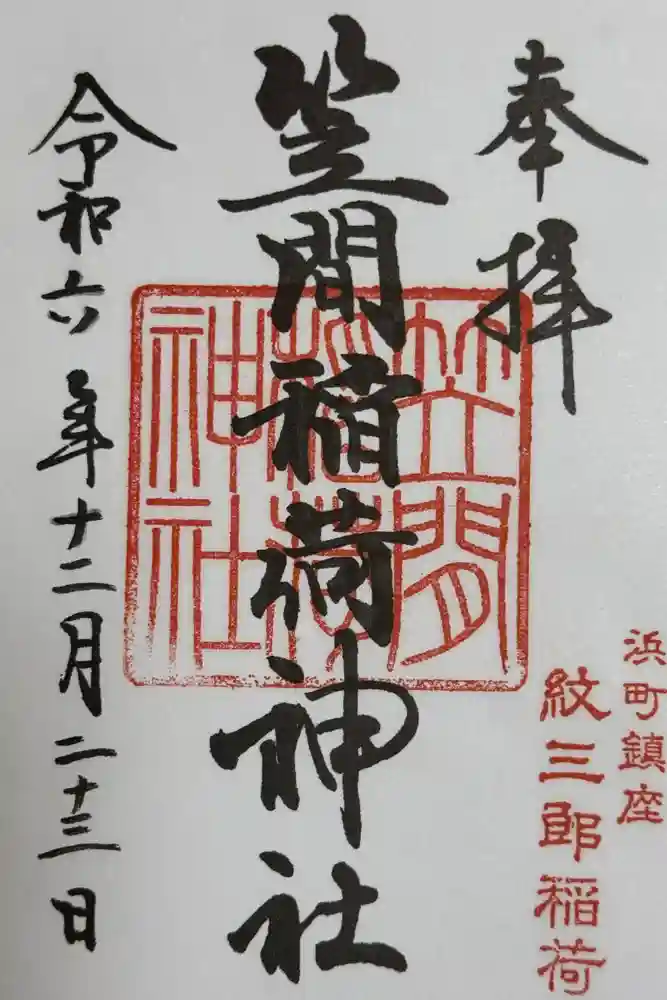 奉拝
浜町鎮座
紋三郎稲荷
笠間稲荷神社
笠間
稲荷
神社
令和六年十二月二十三日